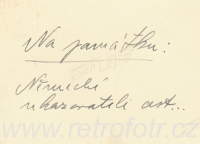 Na památku:
Německé
ukazovatele cest...
www.retrofotr.cz